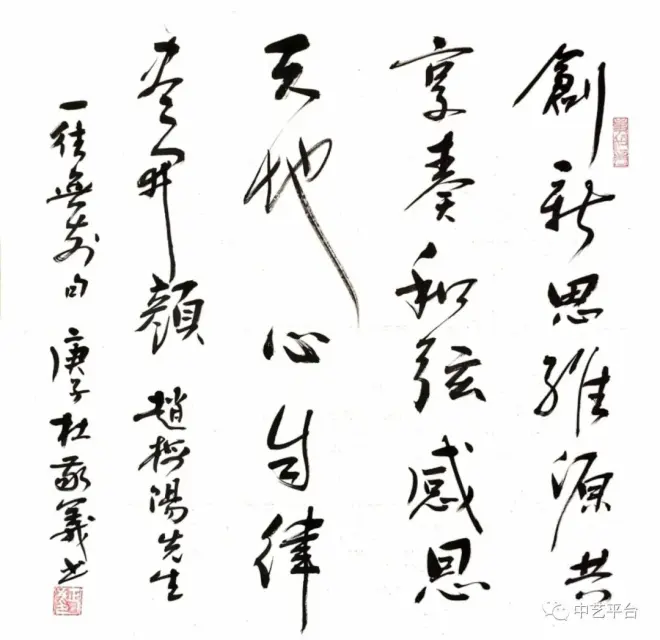 創新思維源共
享奏和弦感恩
天地心自律
盡開顏 趙樹陽先生
一往無前句 庚子杜敬義书
中艺平台